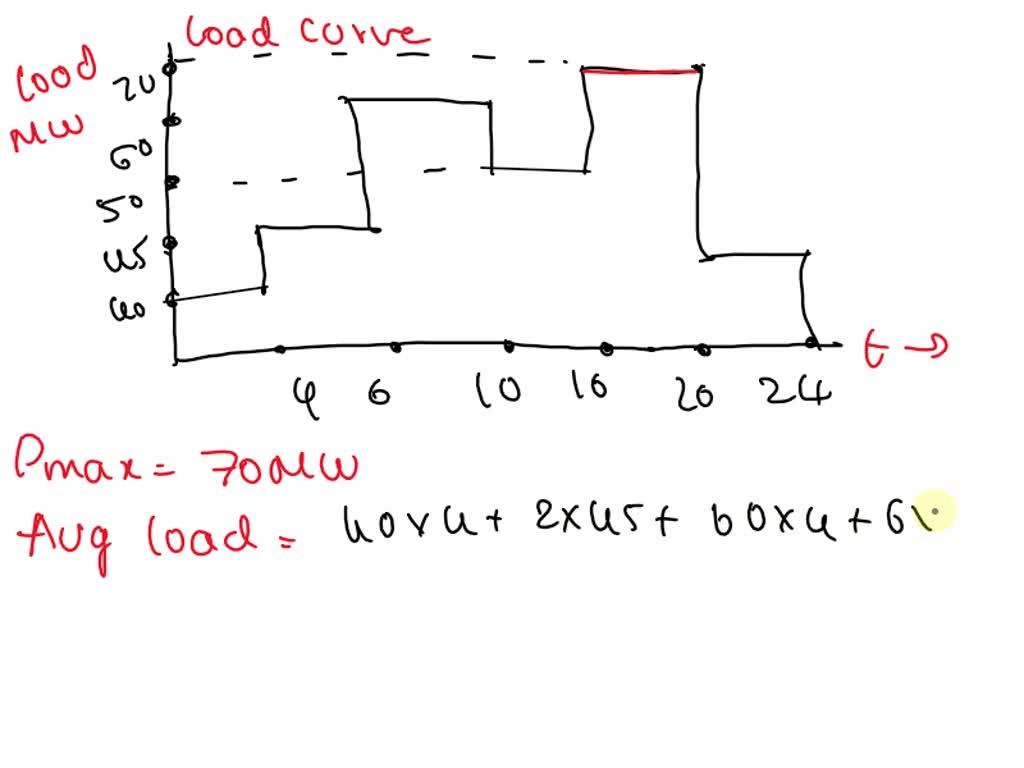 Load curve
Load
MW
70
60
50
45
40
4 6 10 16 20 24 t →
Pmax = 70MW
Avg load = 40×4 + 2×45 + 60×4 + 6×